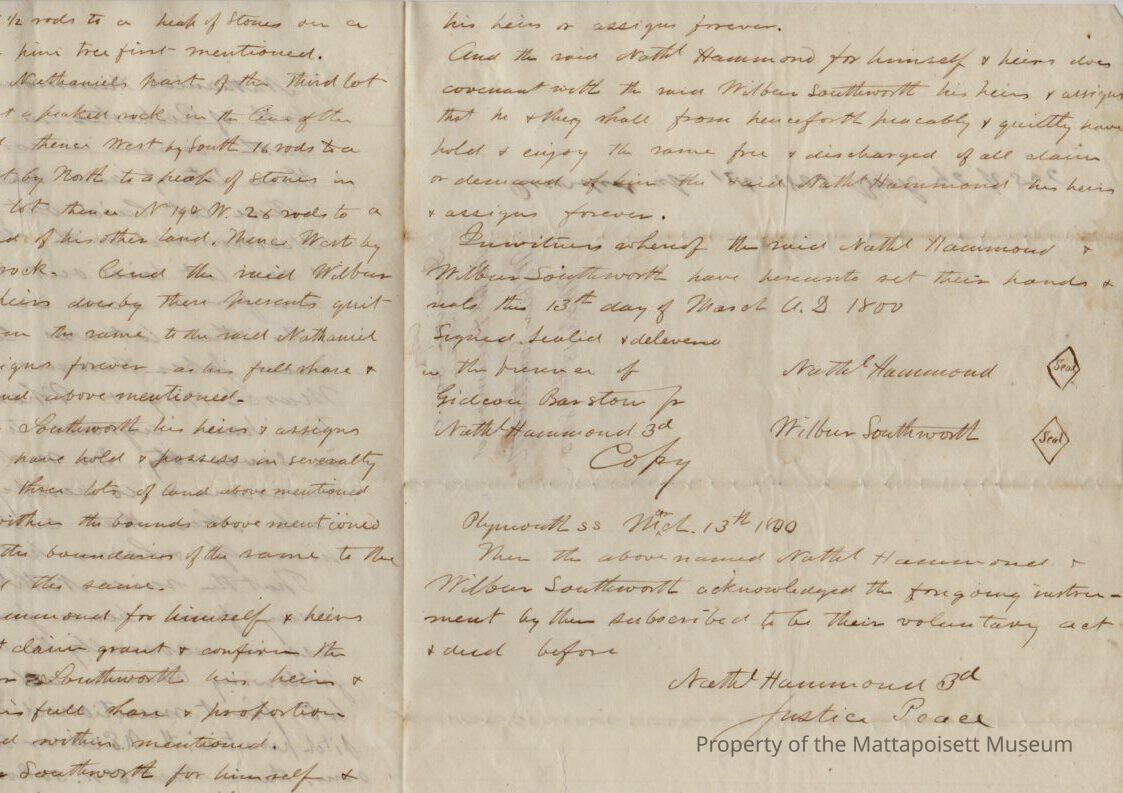 1/2 rods to a heap of Stones on a
pine tree first mentioned.
Nathaniels part of the Third lot
a peaked rock in the line of the
thence West by South 16 rods to a
by North to a heap of Stones in
lot thence N 19° W. 26 rods to a
of his other land. thence West by
rock. And the said Wilbur
heirs does by these presents quit
the same to the said Nathaniel
forever as his full share &
above mentioned.
Southworth his heirs & assigns
have hold & possess in severalty
three lots of land above mentioned
within the bounds above mentioned
the boundaries of the same to the
the same.
for himself & heirs
claim grant & confirm the
Southworth his heirs &
full share & proportion
within mentioned.
Southworth for himself &
his heirs or assigns forever.
And the said Nathl Hammond for himself & heirs does
covenant with the said Wilbur Southworth his heirs & assigns
that he & they shall from henceforth peacably & quietly have
hold & enjoy the same free & discharged of all claim
or demand of him the said Nathl Hammond his heirs
& assigns forever.
In witness whereof the said Nathl Hammond &
Wilbur Southworth have hereunto set their hands &
seals this 13th day of March A.D 1800
Signed Sealed & delevend
in the presence of
Nathl Hammond Seal
Gideon Barstow jr
Nathl Hammond 3d
Wilbur Southworth Seal
Copy
Plymouth ss Mch. 13th 1800
Then the above named Nathl Hammond &
Wilbur Southworth acknowledged the foregoing instru-
ment by them subscribed to be their voluntary act
& deed before
Nathl Hammond 3d
Justice Peace
Property of the Mattapoisett Museum